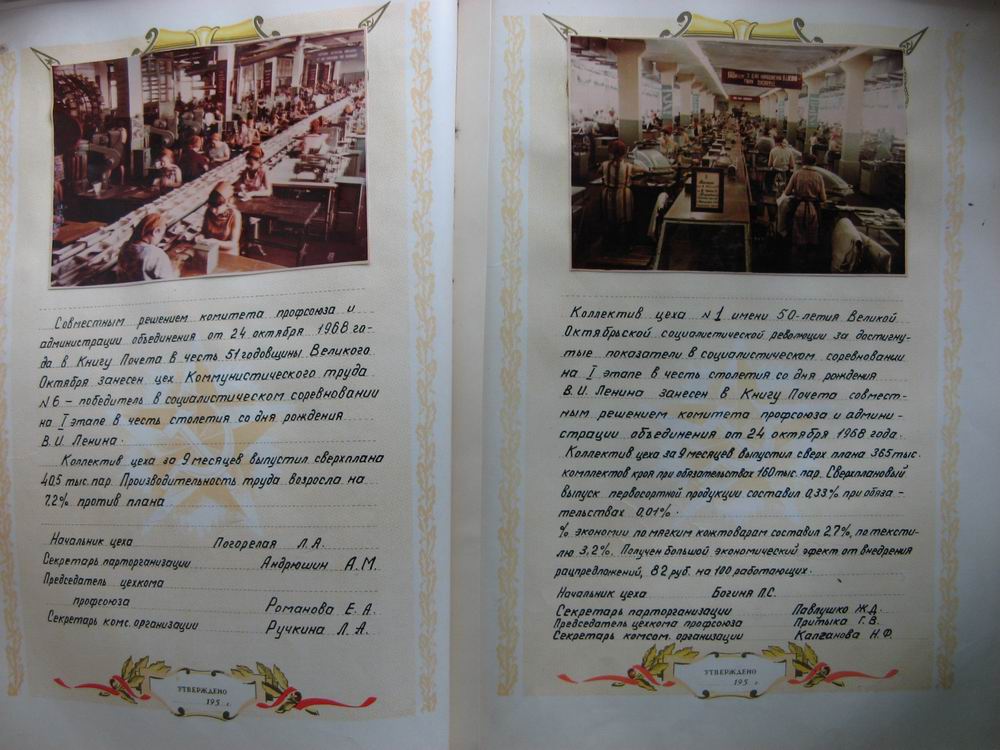 Совместным решением комитета профсоюза и
администрации объединения от 24 октября 1968 го-
да в Книгу Почета в честь 51 годовщины Великого
Октября занесен цех Коммунистического труда
№6 – победитель в социалистическом соревновании
на I этапе в честь столетия со дня рождения
В.И. Ленина.
Коллектив цеха за 9 месяцев выпустил сверхплана
40,5 тыс. пар. Производительность труда возросла на
7,2% против плана
Начальник цеха Погорелая Л.А.
Секретарь парторганизации Андрюшин А.М.
Председатель цехкома
профсоюза Романова Е.А.
Секретарь комс. организации Ручкина Л.А.
УТВЕРЖДЕНО
195 г.
Коллектив цеха №1 имени 50-летия Великой
Октябрьской социалистической революции за достигну-
тые показатели в социалистическом соревновании
на I этапе в честь столетия со дня рождения
В.И. Ленина занесен в Книгу Почета совмест-
ным решением комитета профсоюза и админи-
страции объединения от 24 октября 1968 года.
Коллектив цеха за 9 месяцев выпустил сверх плана 365 тыс.
комплектов кроя при обязательствах 160 тыс. пар. Сверхплановый
выпуск первосортной продукции составил 0,33% при обяза-
тельствах 0,01%.
% экономии по мягким кожтоварам составил 2,7%, по тексти-
лю 3,2%. Получен большой экономический эфект от внедрения
рацпредложений, 82 руб. на 100 работающих.
Начальник цеха Богиня Л.С.
Секретарь парторганизации Павлушко Ж.Д.
Председатель цехкома профсоюза Притыка Г.В.
Секретарь комсом. организации Калганова Н.Ф.
УТВЕРЖДЕНО
195 г.